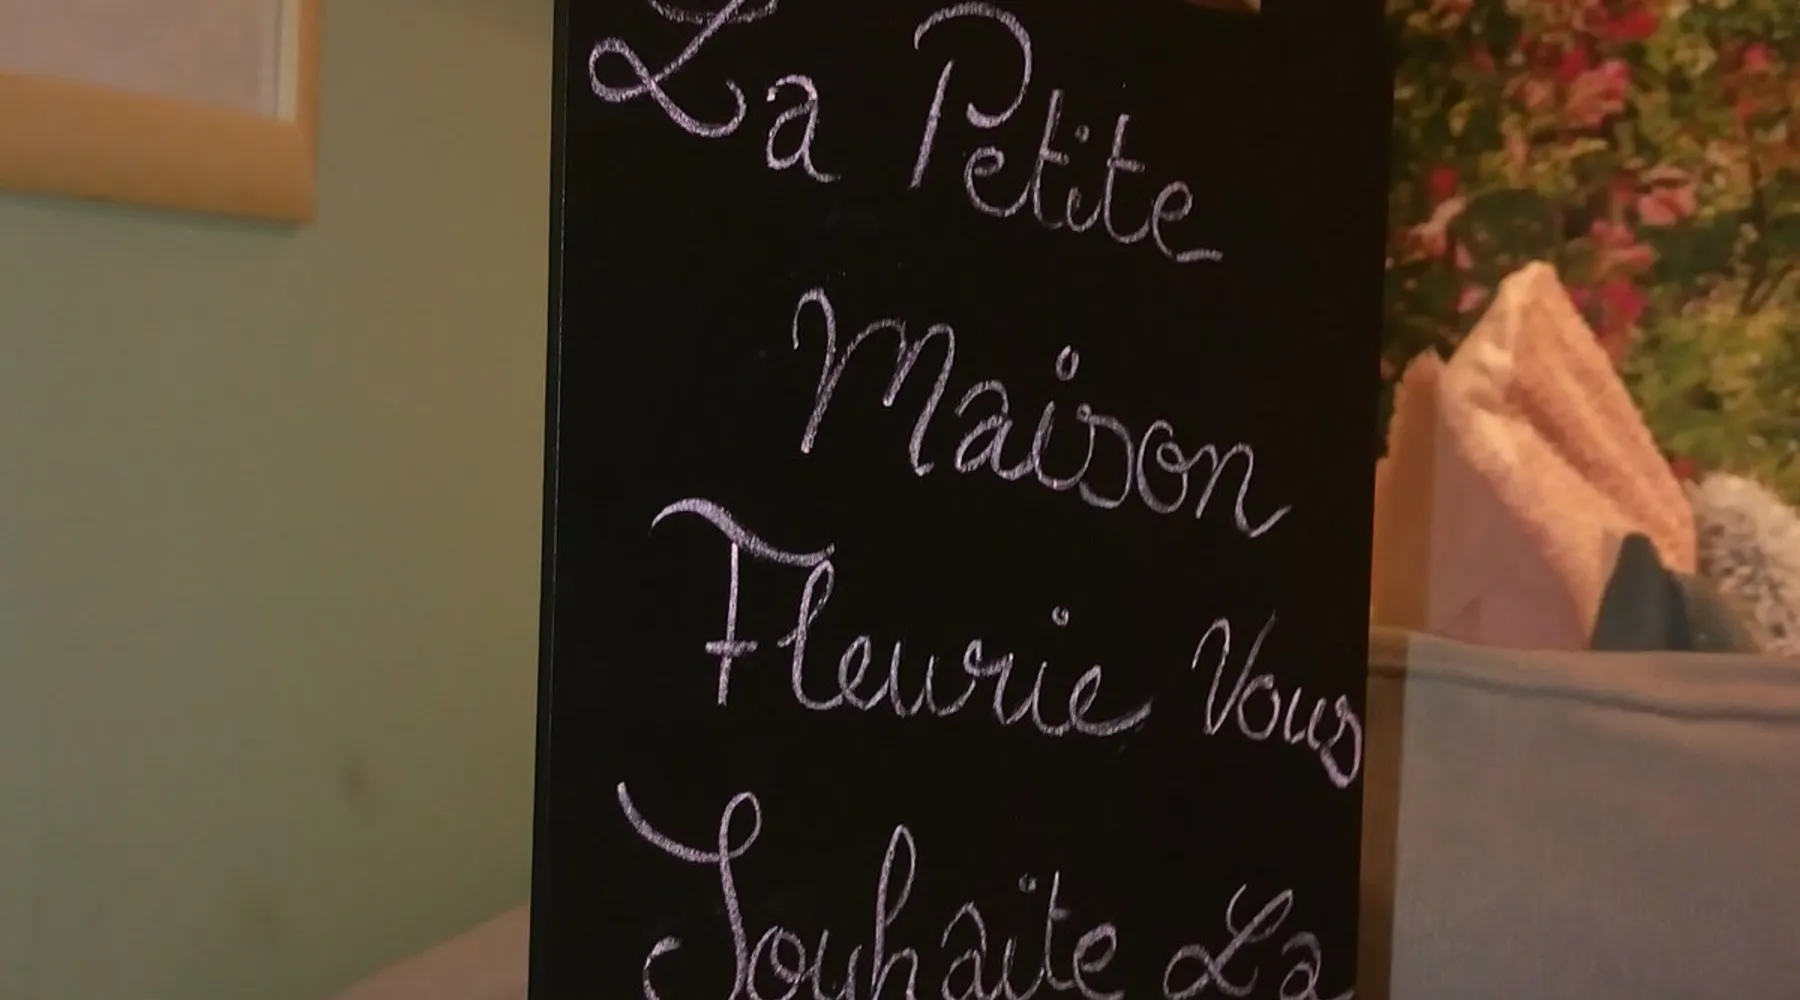 La Petite
Maison
Fleurie Vous
Souhaite La